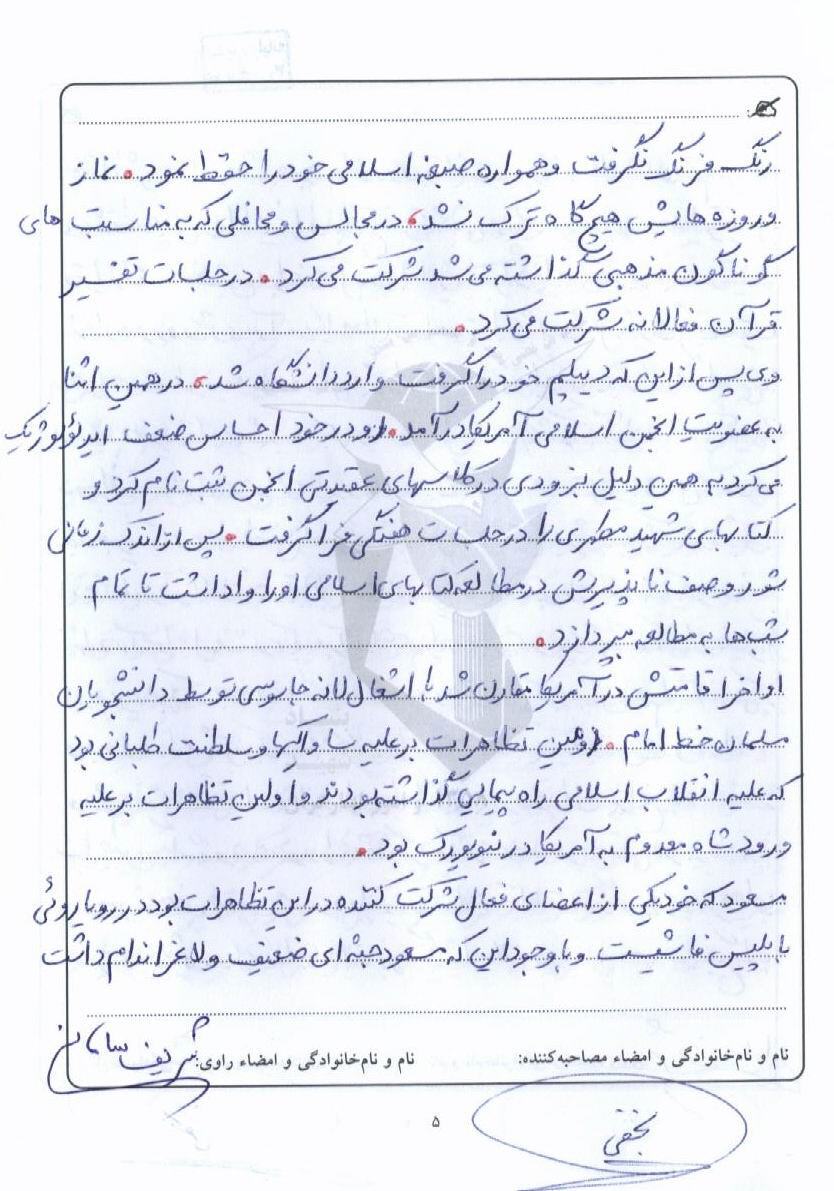 رنگ فرنگ نگرفت و همواره صبغه اسلامی خود را حفظ نمود. نماز
و روزه هایش هیچ گاه ترک نشد، در مجالس و محافلی که به مناسبت های
گوناگون مذهبی گذاشته می شد شرکت می کرد. در جلسات تفسیر
قرآن فعالانه شرکت می کرد.
وی پس از این که دیپلم خود را گرفت وارد دانشگاه شد، در همین اثنا
به عضویت انجمن اسلامی آمریکا درآمد. او در خود احساس ضعف ایدئولوژیک
می کرد به همین دلیل بزودی در کلاسهای عقیدتی انجمن ثبت نام کرد و
کتابهای شهید مطهری را در جلسات هفتگی فرا گرفت. پس از اندک زمانی
شور وصف ناپذیرش در مطالعه کتابهای اسلامی او را واداشت تا تمام
شب ها به مطالعه بپردازد.
اواخر اقامتش در آمریکا مقارن شد با اشغال لانه جاسوسی توسط دانشجویان
مسلمان خط امام. اولین تظاهرات بر علیه ساواکیها و سلطنت طلبانی بود
که علیه انقلاب اسلامی راه پیمایی گذاشته بودند و اولین تظاهرات بر علیه
ورود شاه معدوم به آمریکا در نیویورک بود.
مسعود که خود یکی از اعضای فعال شرکت کننده در این تظاهرات بود در رویاروئی
با پلیس فاشیست و با وجود این که مسعود جثه ای ضعیف و لاغر اندام داشت
نام و نام‌خانوادگی و امضاء مصاحبه‌کننده: نام و نام‌خانوادگی و امضاء راوی:
نجفی
۵